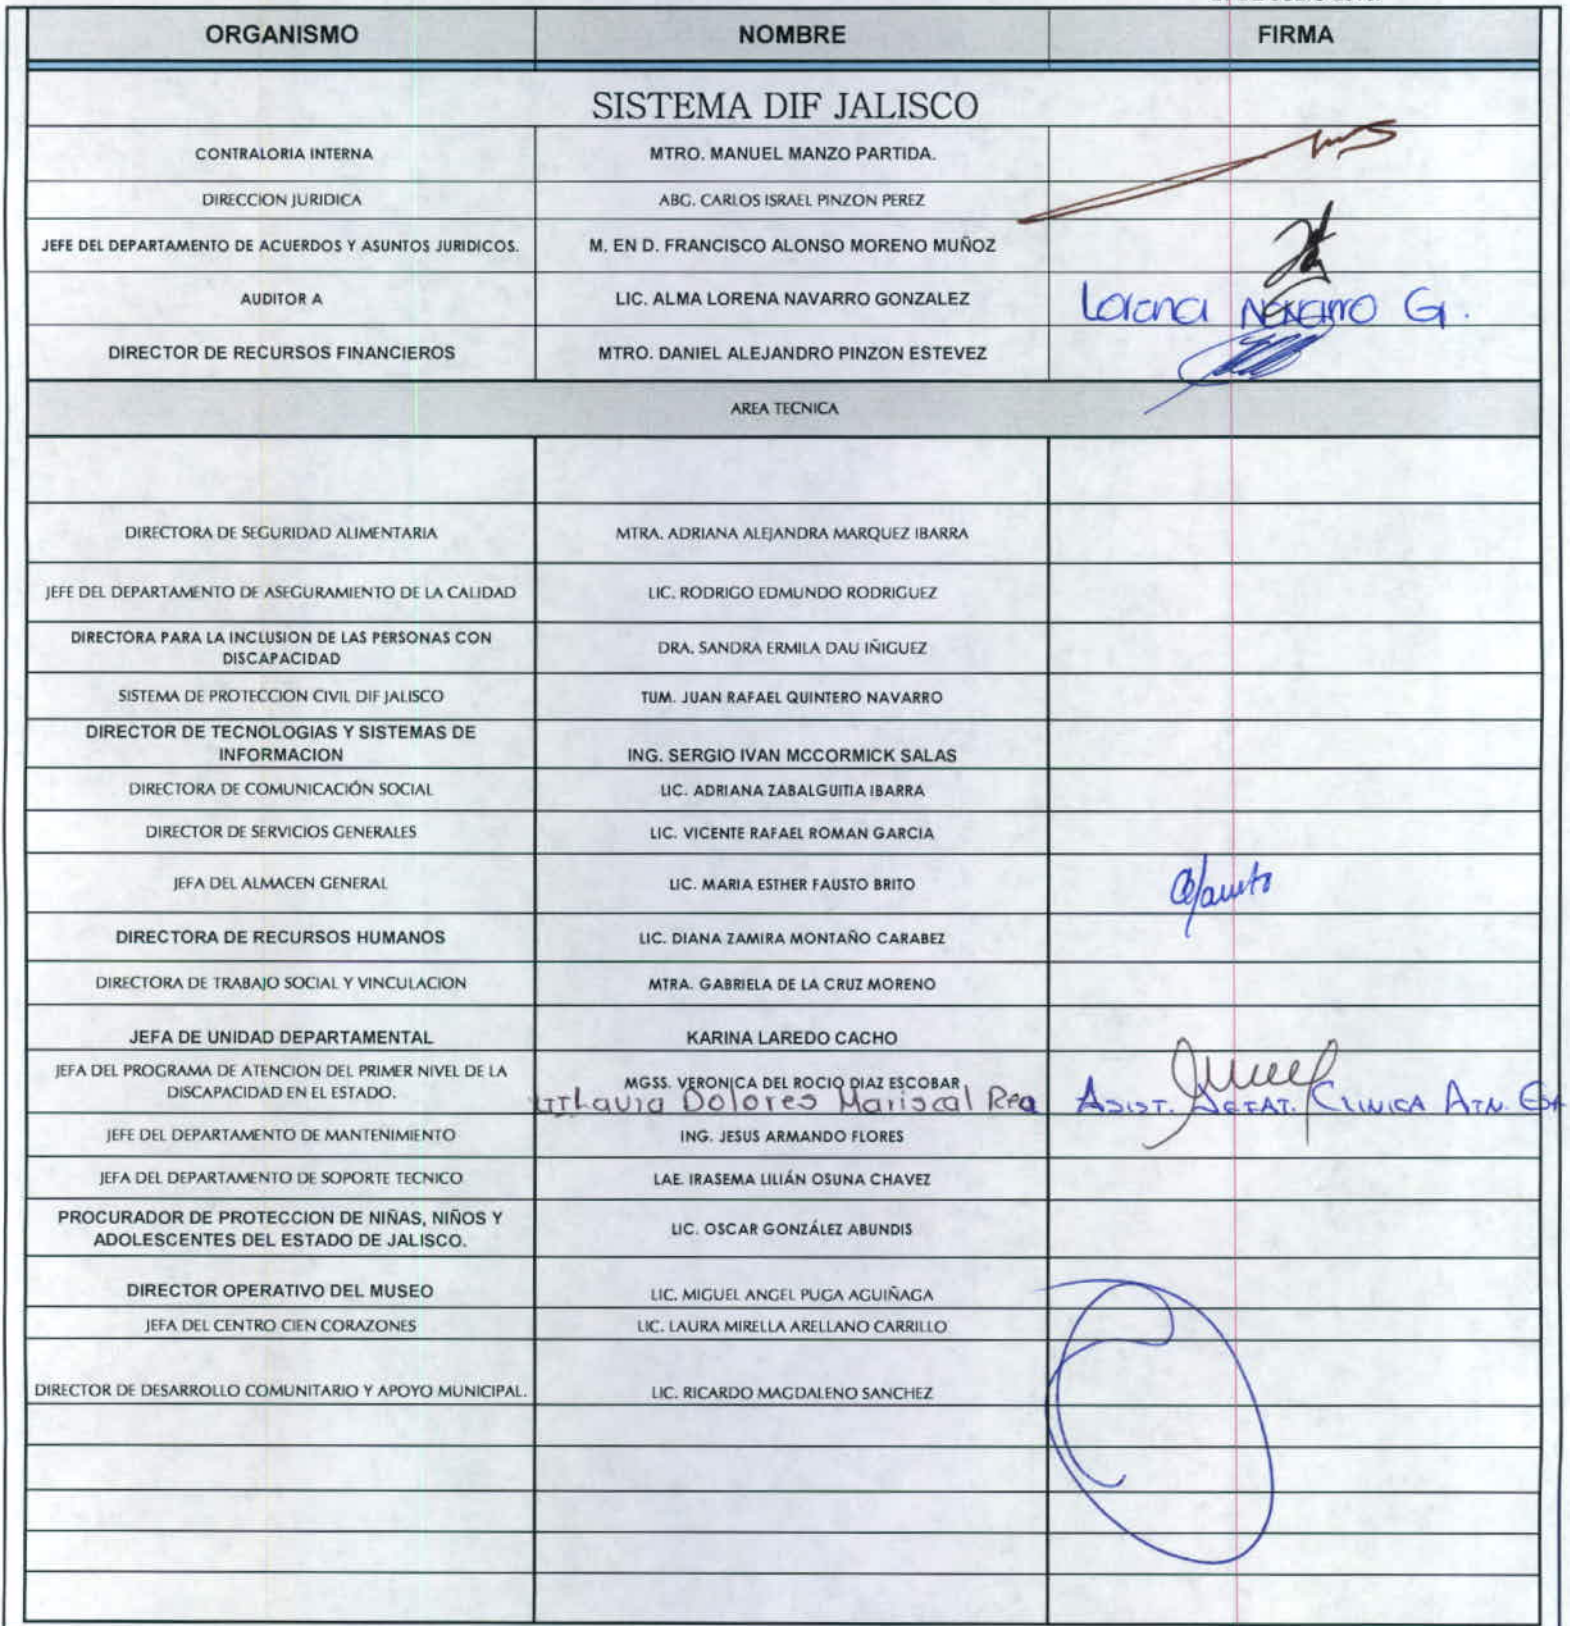 ORGANISMO NOMBRE FIRMA
SISTEMA DIF JALISCO
CONTRALORIA INTERNA MTRO. MANUEL MANZO PARTIDA.
DIRECCION JURIDICA ABG. CARLOS ISRAEL PINZON PEREZ
JEFE DEL DEPARTAMENTO DE ACUERDOS Y ASUNTOS JURIDICOS. M. EN D. FRANCISCO ALONSO MORENO MUÑOZ
AUDITOR A LIC. ALMA LORENA NAVARRO GONZALEZ Lorena Navarro G.
DIRECTOR DE RECURSOS FINANCIEROS MTRO. DANIEL ALEJANDRO PINZON ESTEVEZ
AREA TECNICA
DIRECTORA DE SEGURIDAD ALIMENTARIA MTRA. ADRIANA ALEJANDRA MARQUEZ IBARRA
JEFE DEL DEPARTAMENTO DE ASEGURAMIENTO DE LA CALIDAD LIC. RODRIGO EDMUNDO RODRIGUEZ
DIRECTORA PARA LA INCLUSION DE LAS PERSONAS CON
DISCAPACIDAD DRA. SANDRA ERMILA DAU IÑIGUEZ
SISTEMA DE PROTECCION CIVIL DIF JALISCO TUM. JUAN RAFAEL QUINTERO NAVARRO
DIRECTOR DE TECNOLOGIAS Y SISTEMAS DE
INFORMACION ING. SERGIO IVAN MCCORMICK SALAS
DIRECTORA DE COMUNICACIÓN SOCIAL LIC. ADRIANA ZABALGUITIA IBARRA
DIRECTOR DE SERVICIOS GENERALES LIC. VICENTE RAFAEL ROMAN GARCIA
JEFA DEL ALMACEN GENERAL LIC. MARIA ESTHER FAUSTO BRITO
DIRECTORA DE RECURSOS HUMANOS LIC. DIANA ZAMIRA MONTAÑO CARABEZ
DIRECTORA DE TRABAJO SOCIAL Y VINCULACION MTRA. GABRIELA DE LA CRUZ MORENO
JEFA DE UNIDAD DEPARTAMENTAL KARINA LAREDO CACHO
JEFA DEL PROGRAMA DE ATENCION DEL PRIMER NIVEL DE LA
DISCAPACIDAD EN EL ESTADO. MGSS. VERONICA DEL ROCIO DIAZ ESCOBAR
Laura Dolores Mariscal Rea ASIST. CLINICA ATN.
JEFE DEL DEPARTAMENTO DE MANTENIMIENTO ING. JESUS ARMANDO FLORES
JEFA DEL DEPARTAMENTO DE SOPORTE TECNICO LAE. IRASEMA LILIÁN OSUNA CHAVEZ
PROCURADOR DE PROTECCION DE NIÑAS, NIÑOS Y
ADOLESCENTES DEL ESTADO DE JALISCO. LIC. OSCAR GONZÁLEZ ABUNDIS
DIRECTOR OPERATIVO DEL MUSEO LIC. MIGUEL ANGEL PUGA AGUIÑAGA
JEFA DEL CENTRO CIEN CORAZONES LIC. LAURA MIRELLA ARELLANO CARRILLO
DIRECTOR DE DESARROLLO COMUNITARIO Y APOYO MUNICIPAL. LIC. RICARDO MAGDALENO SANCHEZ